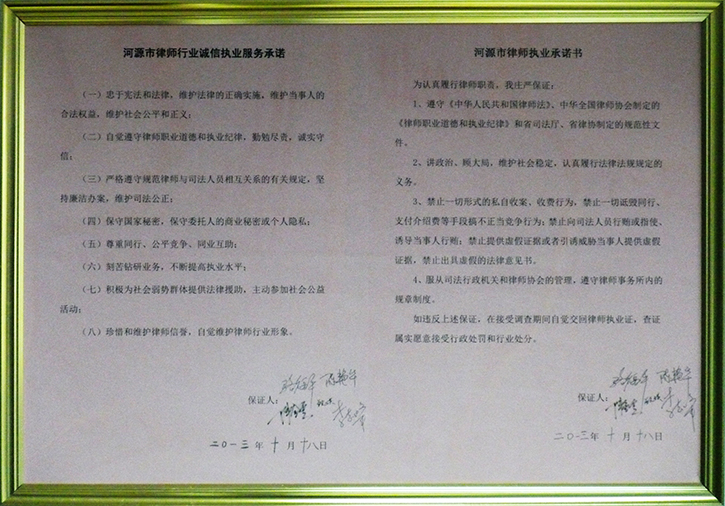 河源市律师行业诚信执业服务承诺
（一）忠于宪法和法律，维护法律的正确实施，维护当事人的
合法权益，维护社会公平和正义；
（二）自觉遵守律师职业道德和执业纪律，勤勉尽责，诚实守
信；
（三）严格遵守规范律师与司法人员相互关系的有关规定，坚
持廉洁办案，维护司法公正；
（四）保守国家秘密，保守委托人的商业秘密或个人隐私；
（五）尊重同行、公平竞争、同业互助；
（六）刻苦钻研业务，不断提高执业水平；
（七）积极为社会弱势群体提供法律援助，主动参加社会公益
活动；
（八）珍惜和维护律师信誉，自觉维护律师行业形象。
保证人：
二〇一三年十月十八日
河源市律师执业承诺书
为认真履行律师职责，我庄严保证：
1、遵守《中华人民共和国律师法》、中华全国律师协会制定的
《律师职业道德和执业纪律》和省司法厅、省律协制定的规范性文
件。
2、讲政治、顾大局，维护社会稳定，认真履行法律法规规定的
义务。
3、禁止一切形式的私自收案、收费行为，禁止一切诋毁同行、
支付介绍费等手段搞不正当竞争行为；禁止向司法人员行贿或指使、
诱导当事人行贿；禁止提供虚假证据或者引诱威胁当事人提供虚假
证据，禁止出具虚假的法律意见书。
4、服从司法行政机关和律师协会的管理，遵守律师事务所内的
规章制度。
如违反上述保证，在接受调查期间自觉交回律师执业证，查证
属实愿意接受行政处罚和行业处分。
保证人：
二〇一三年十月十八日